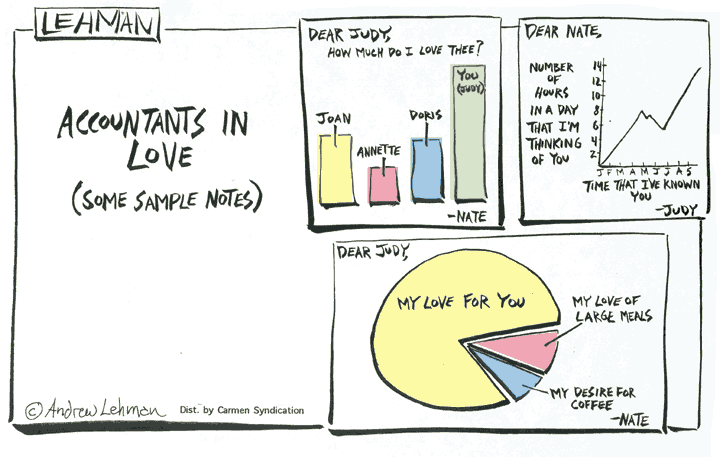 LEHMAN
ACCOUNTANTS IN
LOVE
(SOME SAMPLE NOTES)
© Andrew Lehman
Dist. by Carmen Syndication
DEAR JUDY,
HOW MUCH DO I LOVE THEE?
JOAN
ANNETTE
DORIS
YOU
(JUDY)
-NATE
DEAR NATE,
NUMBER
OF
HOURS
IN A DAY
THAT I'M
THINKING
OF YOU
14
12
10
8
6
4
2
J F M A M J J A S
TIME THAT I'VE KNOWN
YOU
-JUDY
DEAR JUDY,
MY LOVE FOR YOU
MY LOVE OF
LARGE MEALS
MY DESIRE FOR
COFFEE
-NATE